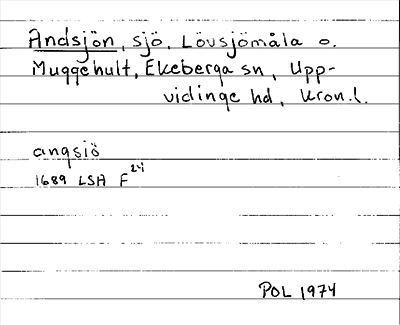 Andsjön, sjö, Lövsjömåla o.
Muggehult, Ekeberga sn, Upp-
vidinge hd, Kron.l.
angsiö
1689 LSA F 24
POL 1974